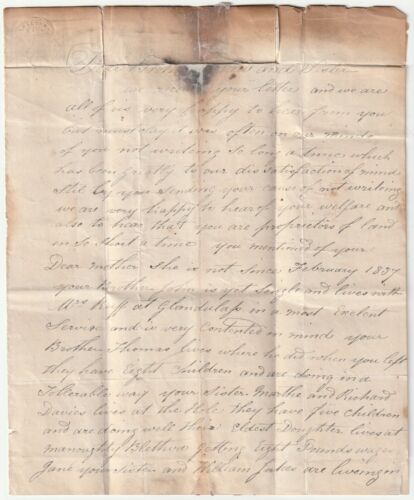 Dear and Sister
we your letter and we are
all of us very happy to hear from you
but must say it was often on our minds
of you not writeing so long a time which
has been greatly to our dis Satisfaction of mind
Still by you Sending your cause of not writeing
we are very happy to hear of your welfare and
also to hear that you are propriotors of land
in so Short a time you mentioned of your
Dear Mother She is not Since February 1837
your Brother John is yet Single and lives with
Mrs at Glandulas in a most exelent
Service and is very Contented in mind your
Brother Thomas lives where he did when you left
they have Eight Children and are doing in a
Tollerable way your Sister Martha and Richard
Davies lives at the Hole they have five Children
and are doing well there Eldest Doughter lives at
getting Eight Pounds wages
Jane your Sister and William are liveing in